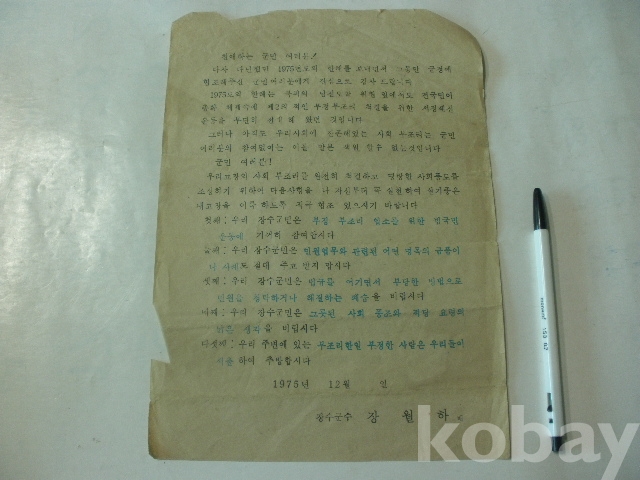 친애하는 군민 여러분!
다사 다난했던 1975년도의 한해를 보내면서 그동안 군정에
협조해주신 군민 여러분에게 진심으로 감사 드립니다
1975년의 한해는
운동을
그러나 아직도 우리사회에 잔존해있는 사회 부조리는 군민
여러분의 참여없이는 이를 발본 색원 할수 없는것입니다
군민 여러분!
우리고장의 사회 부조리를 완전히 척결하고 명랑한 사회풍토를
조성하기 위하여 다음사항을 나 자신부터 꼭 실천하여 살기좋은
내고장을 이룩 하도록 적극 협조 있으시기 바랍니다
첫째: 우리 장수군민은 부정 부조리 일소를 위한 범국민
운동에 기꺼히 참여합시다
둘째: 우리 장수군민은 민원업무와 관련된 어떤 명목의 금품이
나 사례도 절대 주고 받지 맙시다
셋째: 우리 장수군민은 법규를 어기면서 부당한 방법으로
민원을 청탁하거나 해결하는 폐습을 버립시다
네째: 우리 장수군민은 그릇된 사회 풍조와
생각을 버립시다
다섯째: 우리 주변에 있는 부조리한일 부정한 사람은 우리들이
하여 추방합시다
1975년 12월 일
장수군수 장 월 하
kobay
monami 153 0.7